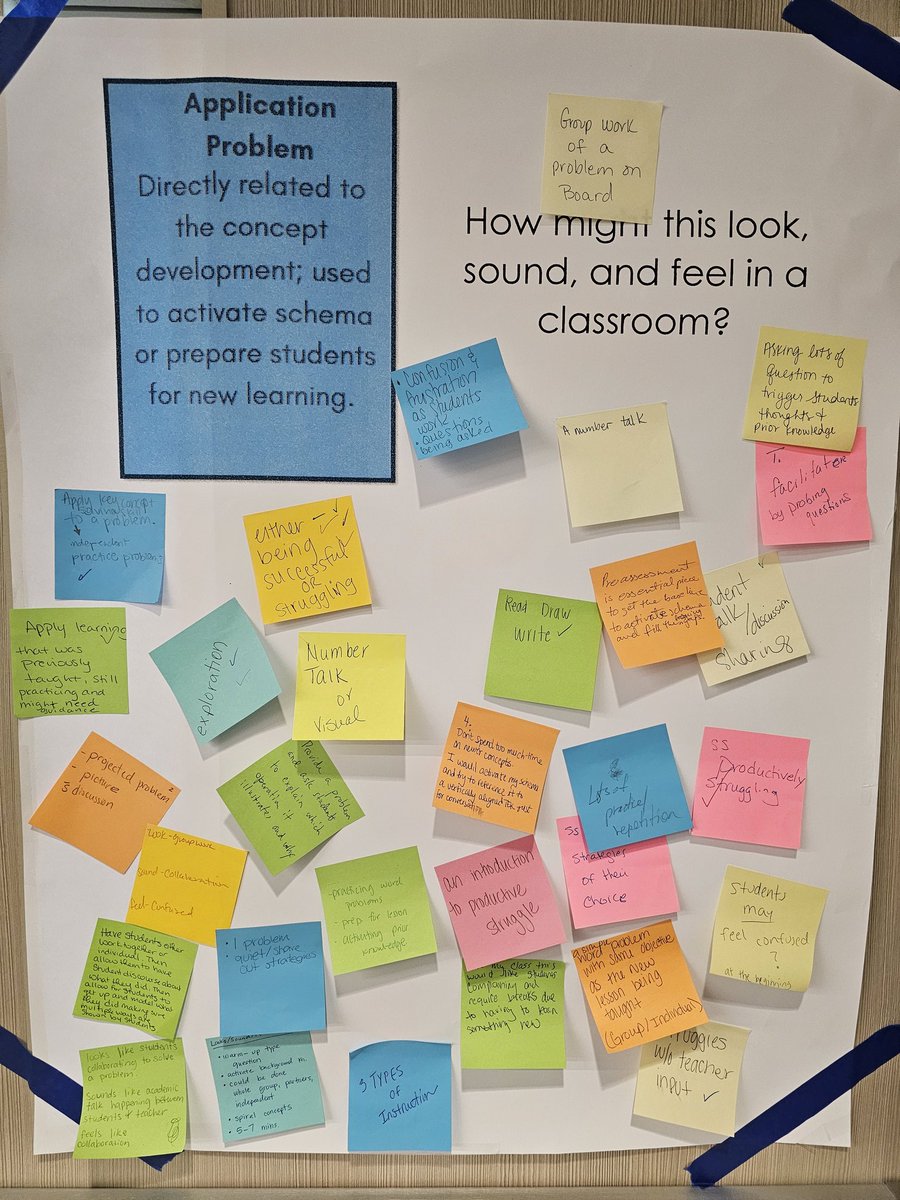 Application
Problem
Directly related to
the concept
development; used
to activate schema
or prepare students
for new learning.
Group work
of a
problem on
Board
How might this look,
sound, and feel in a
classroom?
• Confusion &
frustration
as students
work
• Questions
being asked
A number talk
Asking lots of
question to
trigger students
thoughts &
prior knowledge
T.
facilitator
by probing
questions
Apply key concept
solving
to a problem.
independent
practice problems
✓
either –
being
successful
OR
struggling
Apply learning
that was
previously
taught, still
practicing and
might need
guidance
exploration
✓
Number
Talk
or
Visual
Read Draw
Write ✓
Pre assessment
is essential piece
to get the baseline
to activate schema
and fill the gaps.
talk/discussion
sharing
- projected problem
- picture
3 discussion
Provide a problem
and ask students
to explain which
operation it
illustrates and why
4.
Don't spend too much time
on newer concepts.
I would activate my schema
and try to reference it to
a vertically aligned
for conversation
Lots of
practice/
repetition
SS
Productively
struggling
✓
look-group work
Sound-Collaboration
feel-Confused
-practicing word
problems
- prep for lesson
- activating prior
knowledge
an introduction
to productive
struggle
SS
Strategies
of their
Choice
Students
may
feel confused
?
at the beginning
Have students either
work together or
individual. Then
allow them to have
Student discourse about
what they did. Then
allow for students to
get up and model what
they did making sure
multiple ways are
shown by students
• 1 problem
quiet/share
out strategies
my class this
would like students
complaining and
require breaks due
to having to learn
something new
word problem
with same objective
as the new
lesson being
taught
(Group/Individual)
looks like students
collaborating to solve
a problem.
Sounds like academic
talk happening between
students & teacher
feels like
collaboration
Looks/Sounds
• warm-up type
question
• activate background
• could be done
whole group, partners,
independent
• spiral concepts
• 5-7 mins.
5 TYPES
of
Instruction
w/o teacher
input ✓